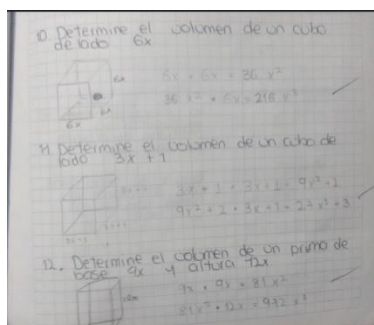 10. Determine el volumen de un cubo
de lado 6x
6x
6x
6x · 6x = 36 x²
36 x² · 6x = 216 x³
11. Determine el volumen de un cubo de
lado 3x + 1
3x + 1 · 3x + 1 = 9x² + 1
9x² + 1 · 3x + 1 = 27 x³ + 3
12. Determine el volumen de un prisma de
base 9x y altura 12x
12x
9x · 9x = 81 x²
81x² · 12x = 972 x³